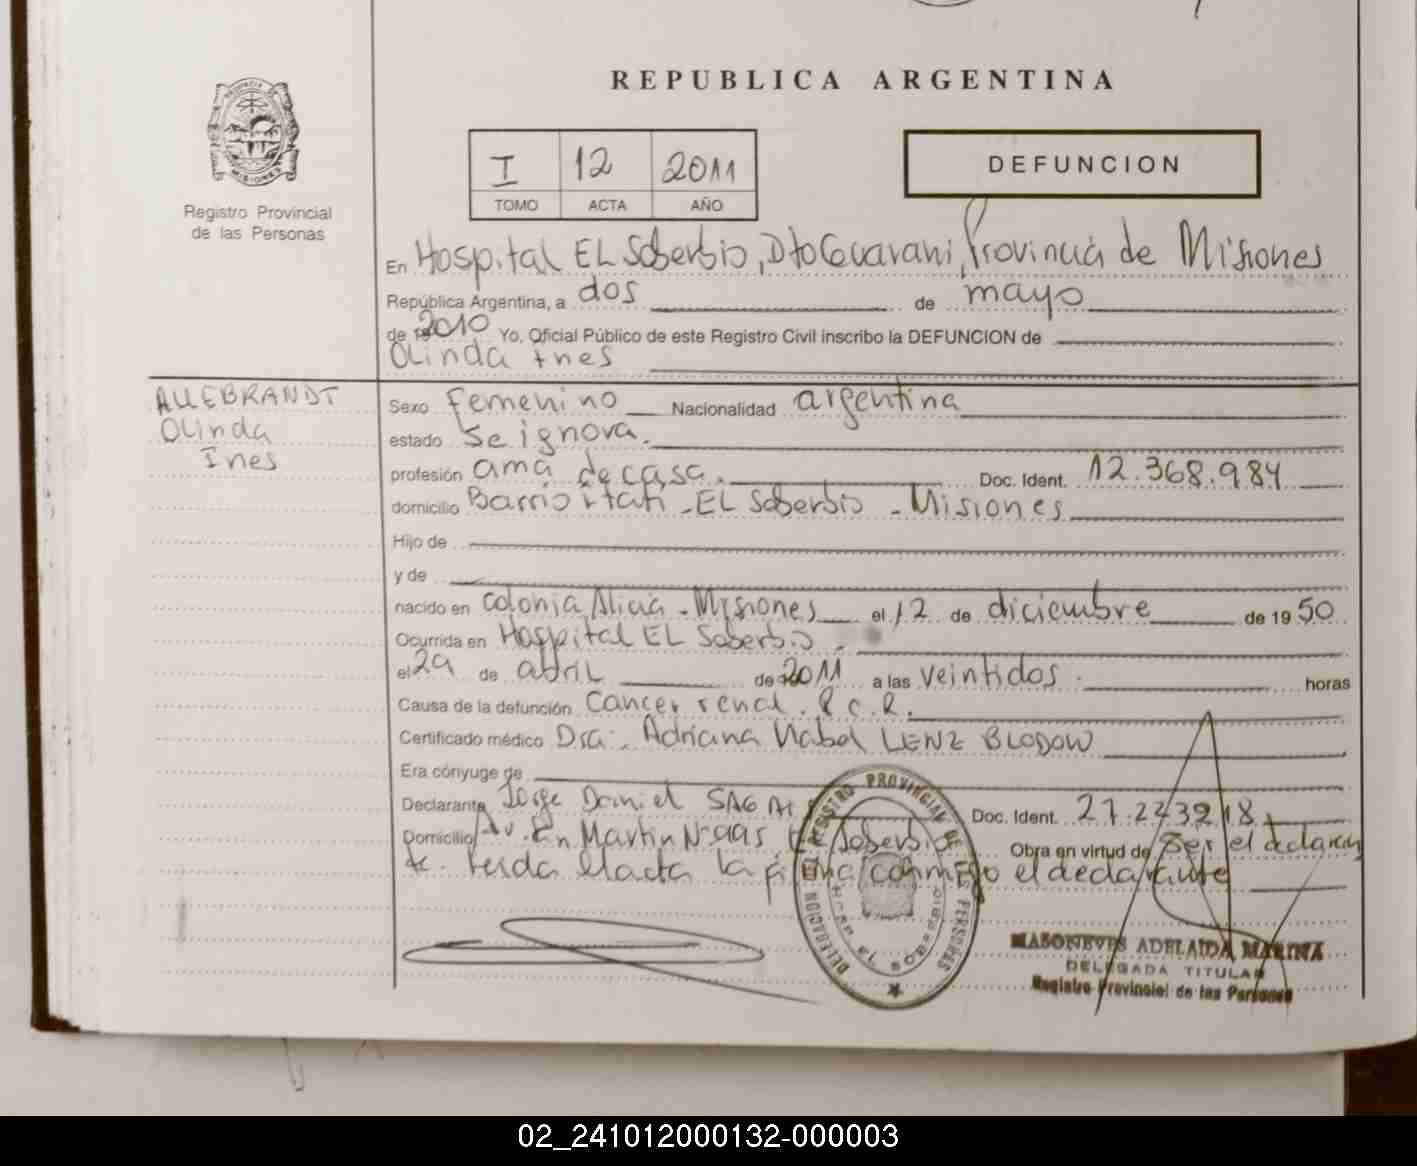 REPUBLICA ARGENTINA
PROVINCIA DE
MISIONES
Registro Provincial
de las Personas
I 12 2011
TOMO ACTA AÑO
DEFUNCION
En Hospital EL Soberbio, Dto Guarani, Provincia de Misiones
República Argentina, a dos de mayo
de 2010 Yo, Oficial Público de este Registro Civil inscribo la DEFUNCION de
Olinda Ines
ALLEBRANDT
Olinda
Ines
Sexo Femenino Nacionalidad argentina
estado Se ignora.
profesión ama de casa. Doc. Ident. 12.368.984
domicilio Barrio Itati - EL Soberbio - Misiones
Hijo de
y de
nacido en Colonia Alicia - Misiones el 12 de diciembre de 1950
Ocurrida en Hospital EL Soberbio -
el 29 de abril de 2011 a las veintidos. horas
Causa de la defunción Cancer renal. P.C.R.
Certificado médico Dra. Adriana Mabel LENZ BLODOW
Era cónyuge de
Declarante Jorge Daniel Doc. Ident.
Domicilio Av. San Martin N° EL Soberbio Obra en virtud de Ser el declaran
te. Leida el acta la firma conmigo el declarante
DELEGACION EL REGISTRO PROVINCIAL DE LAS PERSONAS
EL SOBERBIO
MASONEVES ADELAIDA MARINA
DELEGADA TITULAR
Registro Provincial de las Personas
02_241012000132-000003